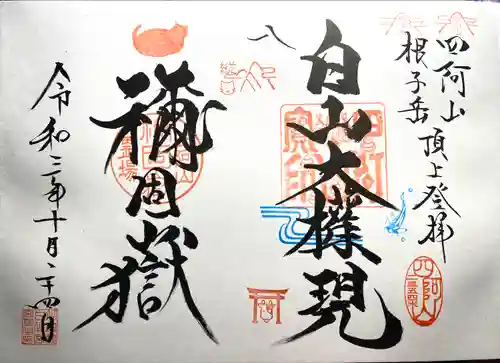 四阿山
根子岳
頂上登拝
八
白山大權現
禰固嶽
令和三年十月二十四日